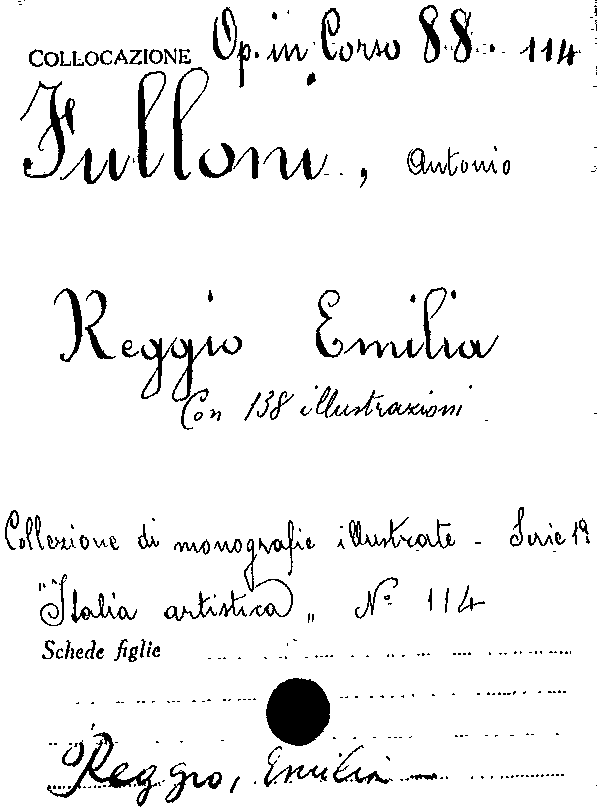 COLLOCAZIONE Op. in Corso 88. 114
Fulloni, Antonio
Reggio Emilia
Con 138 illustrazioni
Collezione di monografie illustrate - Serie 1ª
"Italia artistica„ Nº 114
Schede figlie
Reggio, Emilia -